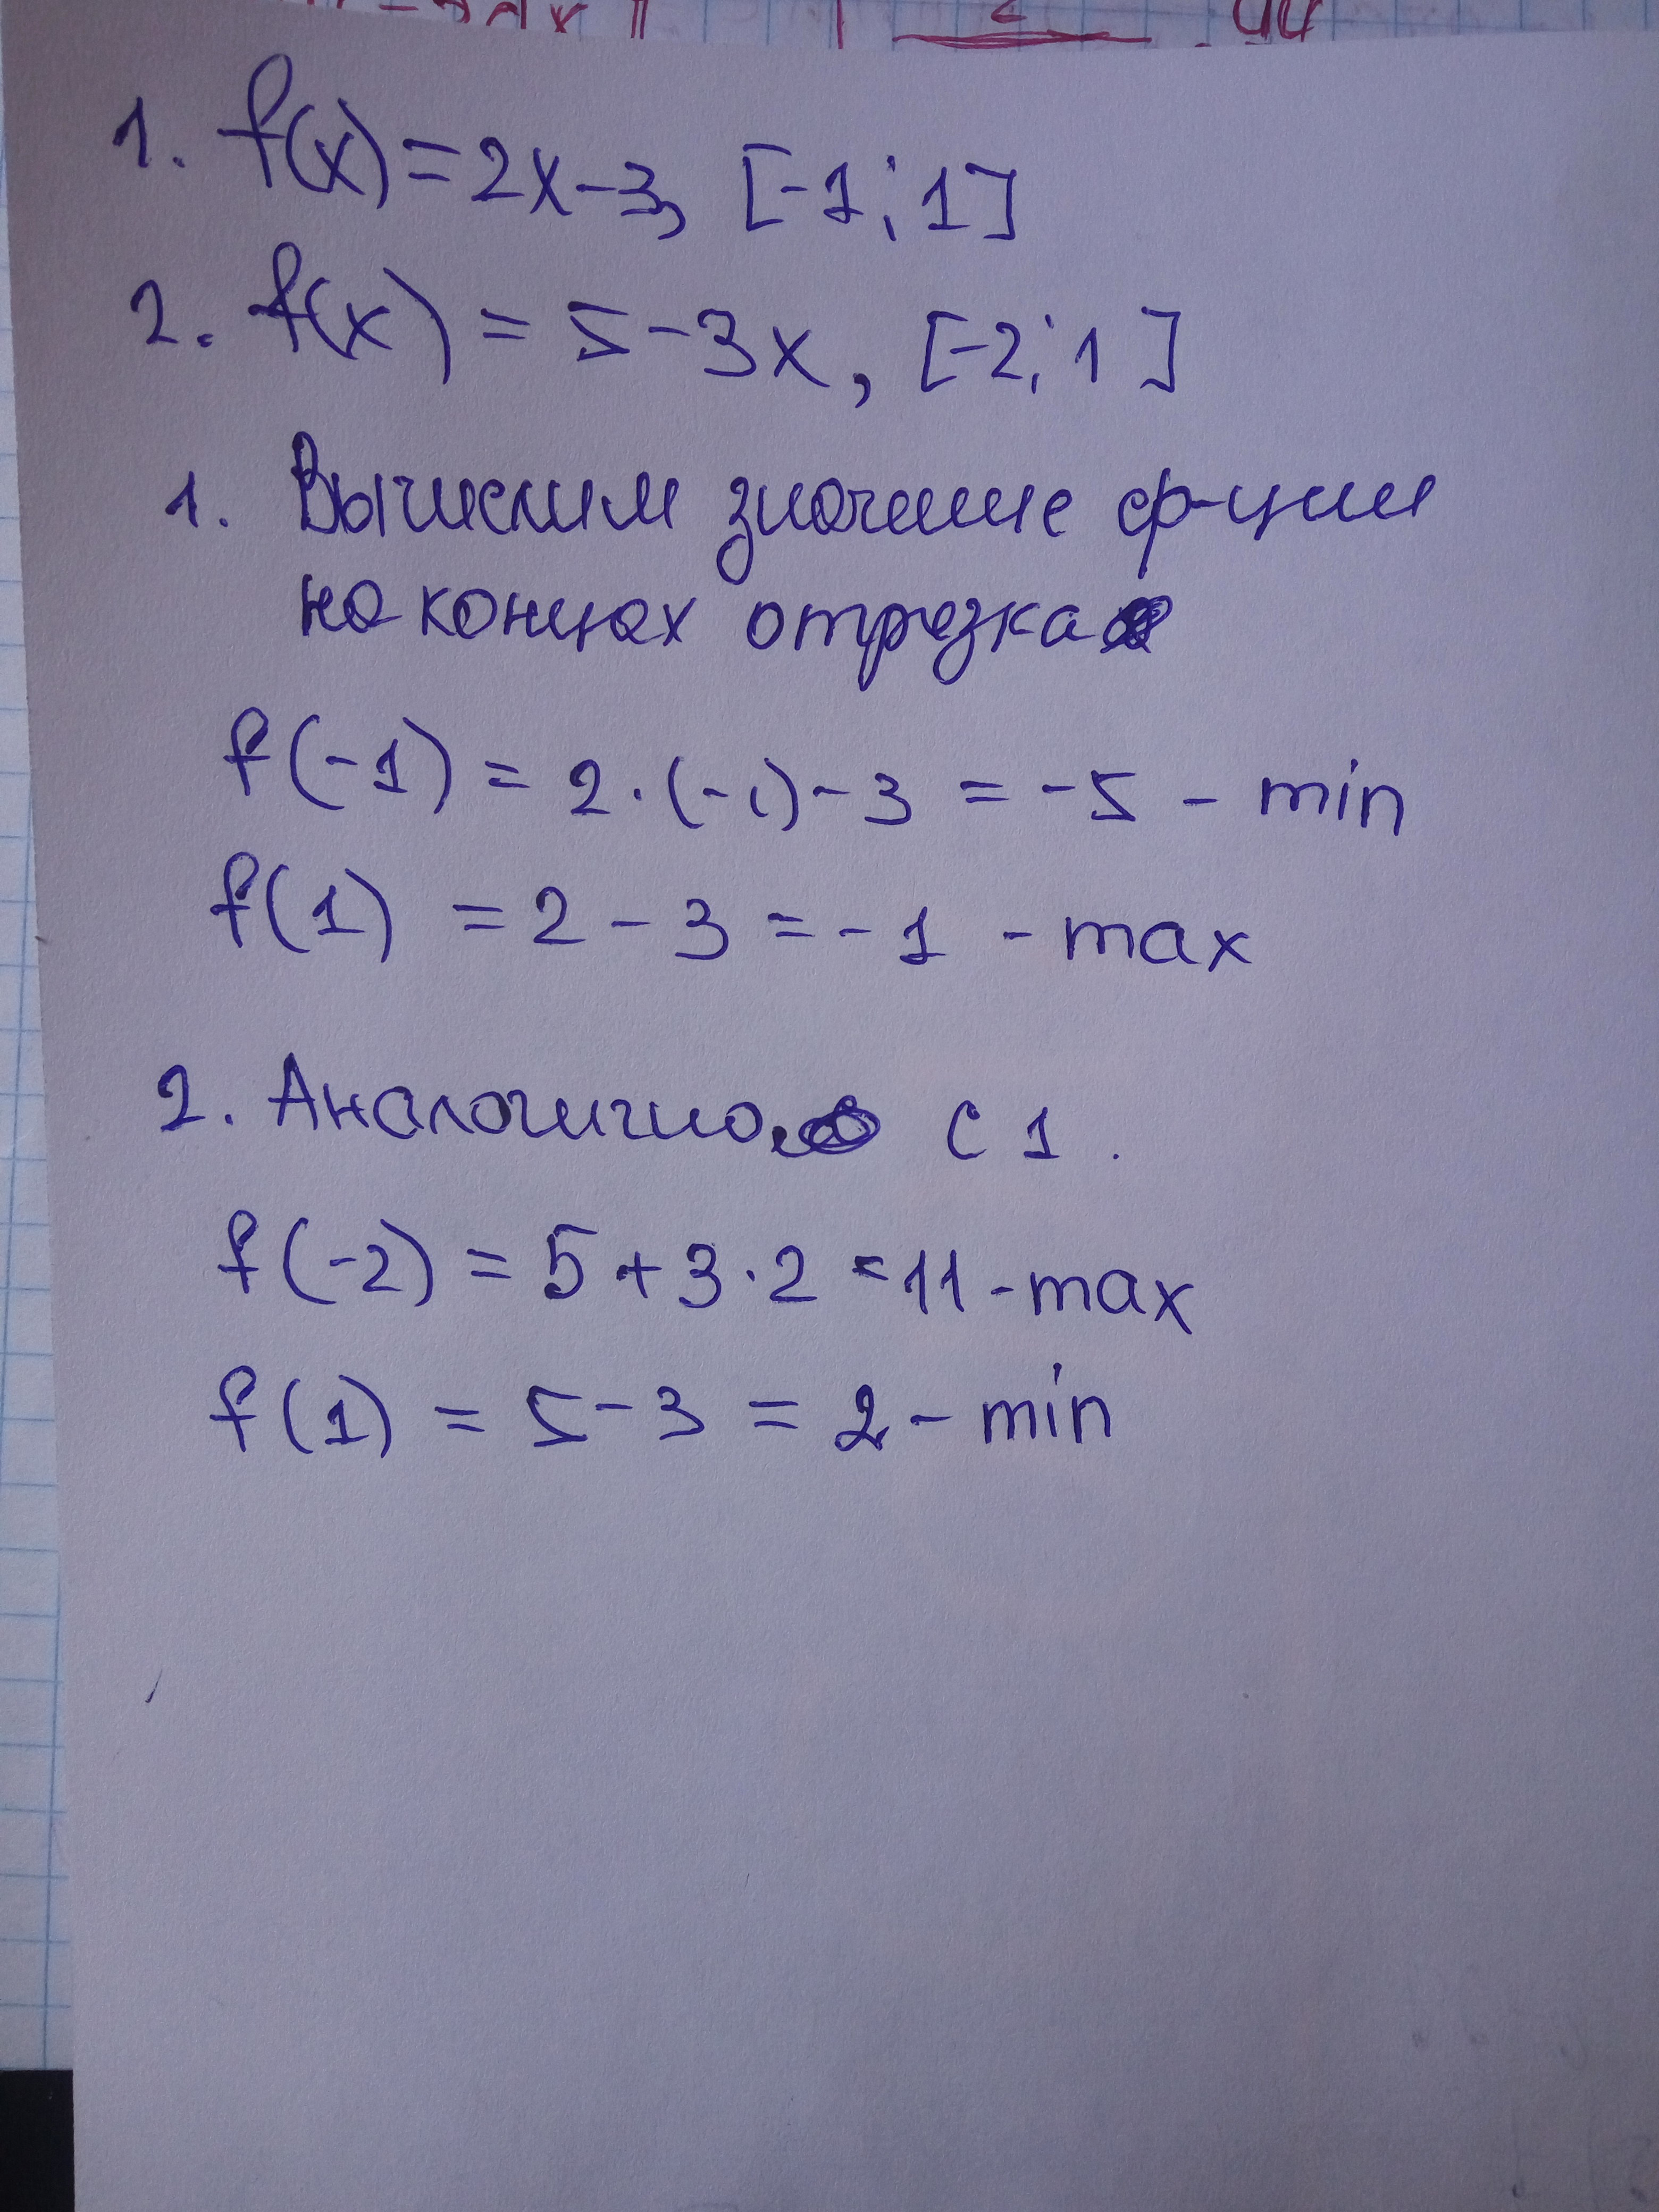 1. f(x)=2x-3, [-1;1]
2. f(x) = 5-3x, [-2;1]
1. Вычислим значение ф-ции
на концах отрезка
f(-1) = 2·(-1)-3 = -5 - min
f(1) = 2 - 3 = -1 - max
2. Аналогично с 1.
f(-2) = 5+3·2 = 11 - max
f(1) = 5-3 = 2 - min